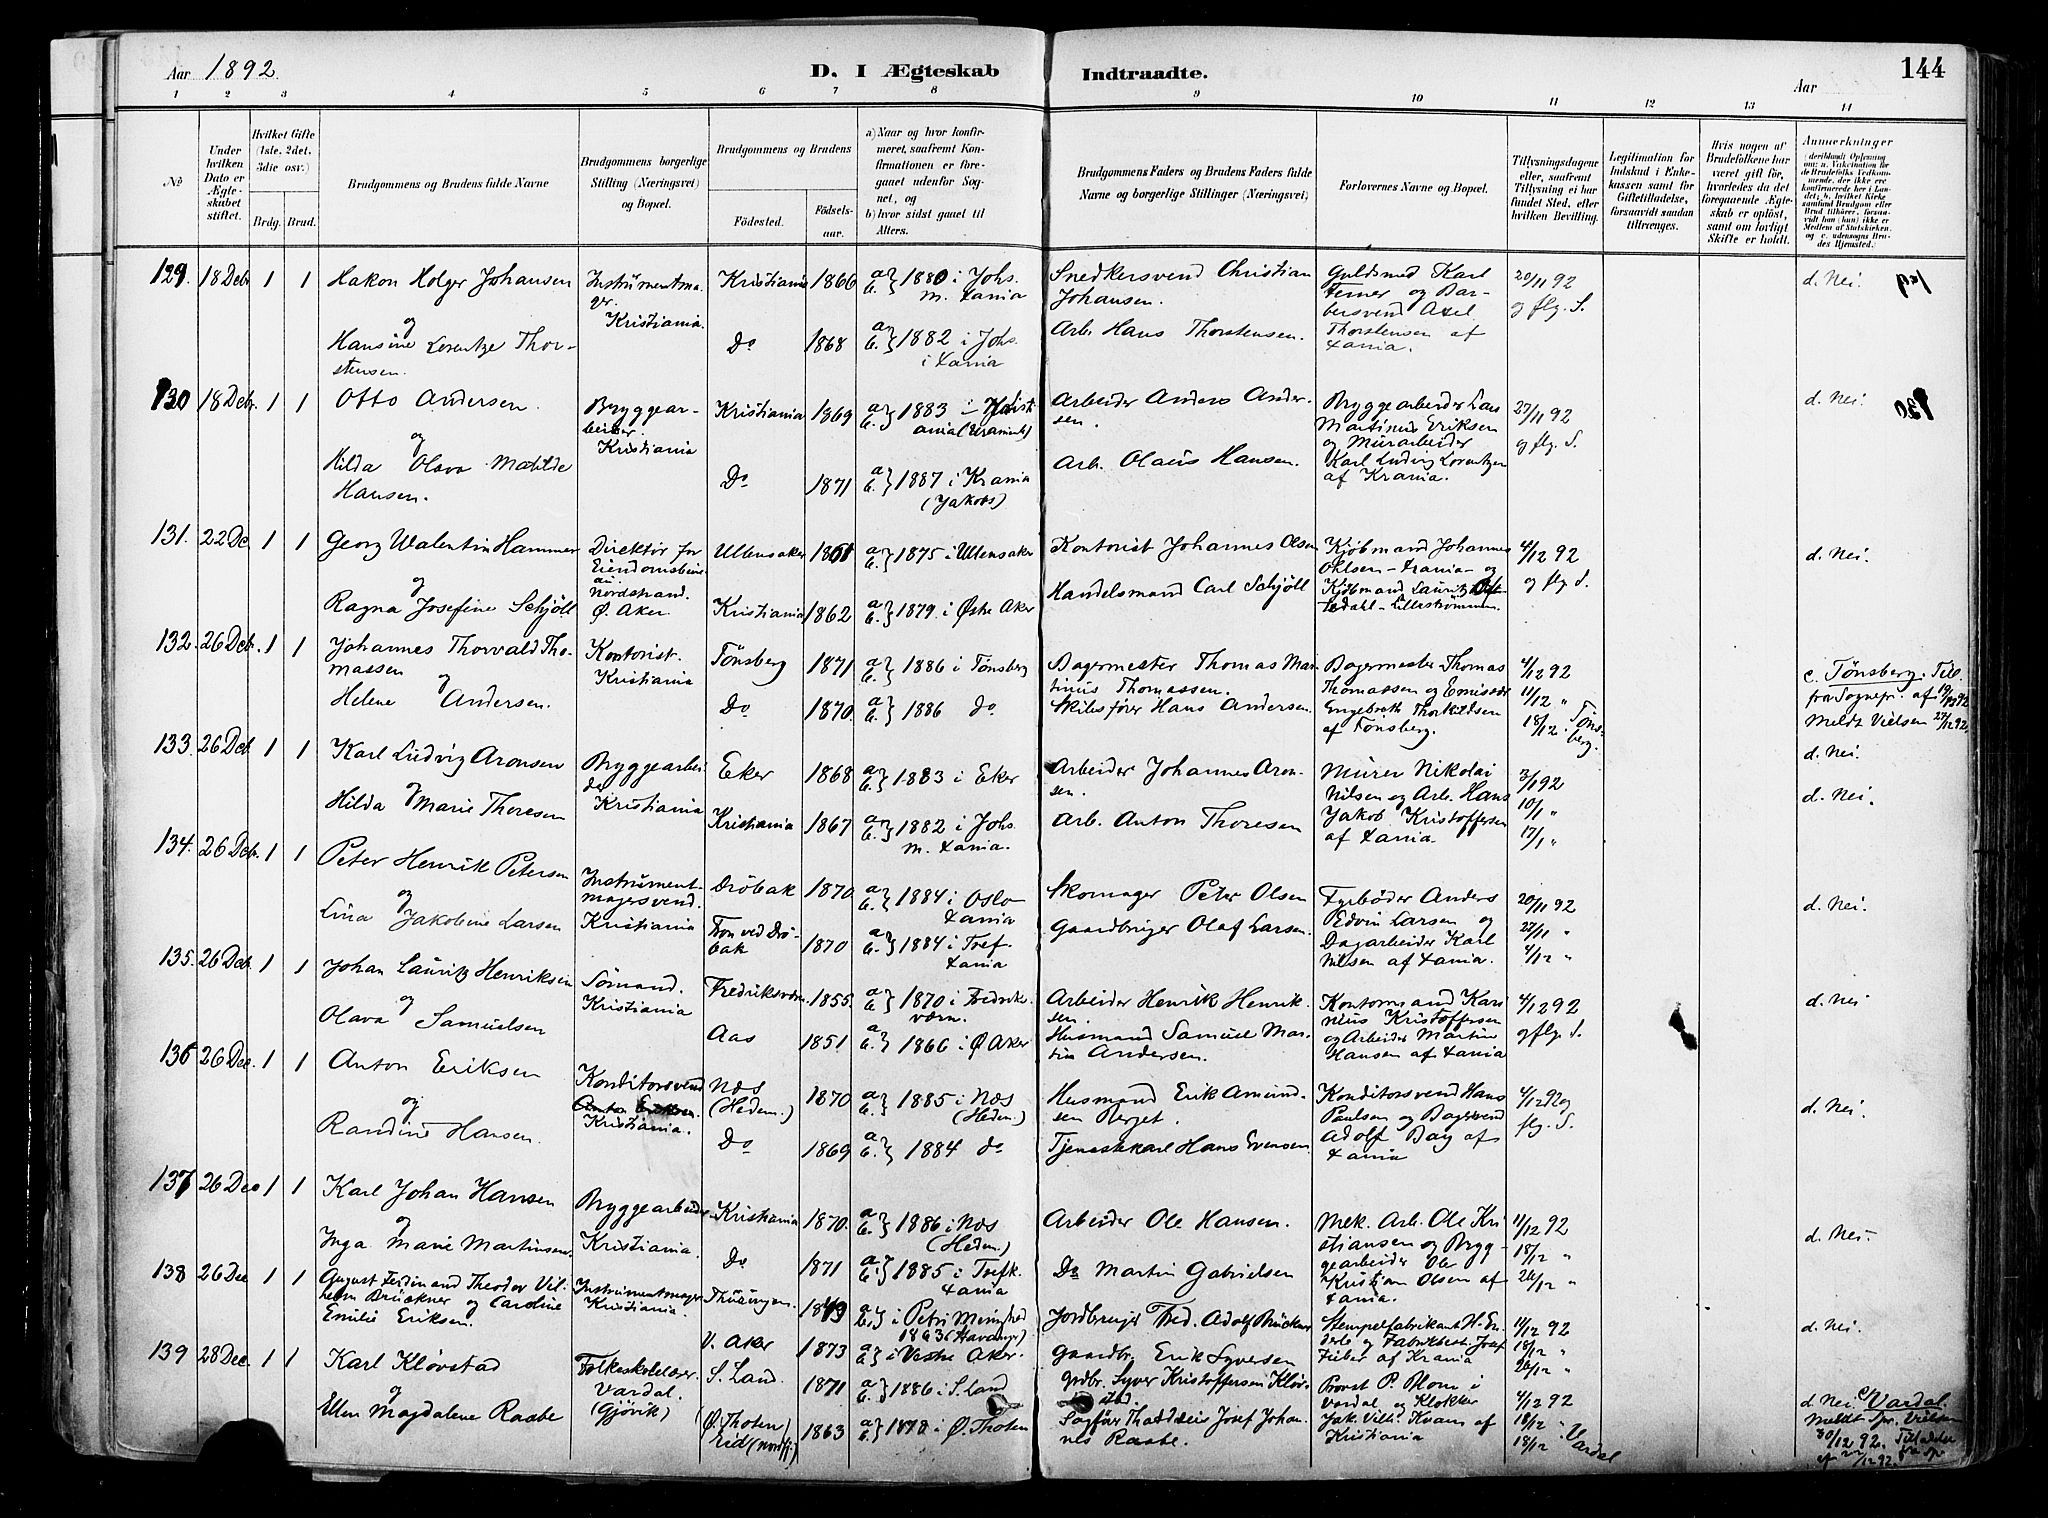 Aar 1892.
D. I Ægteskab Indtraadte.
Aar
144
1 2 3 4 5 6 7 8 9 10 11 12 13 14
No
Under hvilken Dato er Ægteskabet stiftet.
Hvilket Gifte (1ste, 2det, 3die osv.)
Brdg. Brud.
Brudgommens og Brudens fulde Navne
Brudgommens borgerlige Stilling (Næringsvei) og Bopæl.
Brudgommens og Brudens
Fødested. Fødselsaar.
a) Naar og hvor konfirmeret, saafremt Konfirmationen er foregaaet udenfor Sognet, og
b) hvor sidst gaaet til Alters.
Brudgommens Faders og Brudens Faders fulde Navne og borgerlige Stillinger (Næringsvei)
Forlovernes Navne og Bopæl.
Tillysningsdagene eller, saafremt Tillysning ei har fundet Sted, efter hvilken Bevilling.
Legitimation for Indskud i Enkekassen samt for Giftetilladelse, forsaavidt saadan tiltrænges.
Hvis nogen af Brudefolkene har været gift før, hvorledes da det foregaaende Ægteskab er opløst, samt om lovligt Skifte er holdt.
Anmerkninger
129. 18 Debr 1 1 Hakon Holger Johansen
og
Hansine Lorentze Thorstensen.
Instrumentmager. Kristiania.
Kristiania 1866 a b. } 1880 i Johs. m. Xania
Do 1868 a b. } 1882 i Johs. i Xania
Snedkersvend Christian Johansen.
Arb. Hans Thorstensen.
Guldsmed Karl Ferner og Barbersvend Axel Thorstensen af Xania.
20/11 92 og flg. S.
d. Nei.
130 18 Debr. 1 1 Otto Andersen.
og
Hilda Olava Matilde Hansen.
Bryggearbeider. Kristiania
Kristiania 1869 a b. } 1883 i Kristiania (Uranienb)
Do 1871 a b. } 1887 i Krania (Jakobs)
Arbeider Anders Andersen.
Arb. Olaus Hansen.
Bryggearbeider Lars Martinus Eriksen og Murarbeider Karl Ludvig Lorentzen af Krania.
27/11 92 og flg. S.
d. Nei.
130
131. 22 De 1 1 Georg Walentin Hammer
og
Ragna Josefine Schjöll
Direktör for Eiendomsbureau. Nordstrand. Ø. Aker
Ullensaker 1861 a b. } 1875 i Ullensaker
Kristiania 1862 a b. } 1879. i Østre Aker
Kontorist Johannes Olsen
Handelsmand Carl Schjöll
Kjöbmand Johannes Ohlsen - Krania - og Kjöbmand Lauritz - Lilleströmmen.
4/12 92 og flg. S.
d. Nei.
132. 26 Debr. 1 1 Johannes Thorvald Thomassen
og
Helene Andersen.
Kontorist. Kristiania
Tönsberg 1871 a b. } 1886 i Tönsberg
Do 1870 a b. } 1886 do
Bagermester Thomas Martinus Thomassen.
Skibsförer Hans Andersen.
Bagermester Thomas Thomassen og Engebreth Thorkildsen af Tönsberg.
4/12 92
11/12 "
18/12 . Tönsberg.
c. Tønsberg. Till. fra Sognepr. af 19/12 92
Meldt Vielsen 27/12 92.
133. 26 Deb. 1 1 Karl Ludvig Aronsen
og
Hilda Marie Thoresen
Bryggearbeider Kristiania
Eker 1868 a b. } 1883 i Eker
Kristiania 1867 a b. } 1882 i Johs. m. Xania.
Arbeider Johannes Aronsen.
Arb. Anton Thoresen
Murer Nikolai Nilsen og Arb. Hans Jakob Kristoffersen af Xania.
3/1 92
10/1 "
17/1 "
d. Nei.
d. Nei.
134. 26 Debr. 1 1 Peter Henrik Petersen
og
Lina Jakobine Larsen
Instrumentmagersvend. Kristiania
Dröbak 1870. a b. } 1884 i Oslo Xania
Fron ved Dröbak 1870 a b. } 1884 i Tref. Xania
Skomager Peter Olsen
Gaardbruger Olaf Larsen.
Fyrböder Anders Edvin Larsen og Dagarbeider Karl Nilsen af Xania.
20/11 92
27/11 "
4/12 "
d. Nei.
135. 26 Debr. 1 1 Johan Lauritz Henriksen
og
Olava Samuelsen
Sömand. Kristiania
Fredriksværn. 1855. a b. } 1870 i Fredriksværn.
Aas 1851 a b. } 1866 i Ø Aker
Arbeider Henrik Henriksen.
Husmand Samuel Martin Andersen.
Kontormand Karnelius Kristoffersen og Arbeider Martin Hansen af Xania
4/12 92 og flg. S.
d. Nei
136 26 Dec. 1 1 Anton Eriksen
og
Randine Hansen.
Konditorsvend Anton Eriksen. Kristiania.
Næs (Hedem.) 1870 a b. } 1885 i Næs (Hedem.)
Do 1869 a b. } 1884 do
Husmand Erik Amundsen Berget.
Tjenestekarl Hans Evensen
Konditorsvend Hans Paulsen og Bagersvend Adolf Bay af Xania
4/12 92 og flg. S.
d. Nei.
137 26 Dec 1 1 Karl Johan Hansen
og
Inga Marie Martinsen.
Bryggearbeider Kristiania.
Kristiania 1870. a b. } 1886 i Næs (Hedem.)
Do 1871 a b. } 1885 i Trefk. Xania
Arbeider Ole Hansen.
Do Martin Gabrielsen
Mek. Arb. Ole Kristiansen og Bryggearbeider Ole Kristian Olsen af Xania.
11/12 92
18/12 "
26/12 "
d. Nei.
138 26 Dec 1 1 August Ferdinand Theodor Vilhelm Brückner og Caroline Emilie Eriksen.
Instrumentmager Kristiania.
Thüringen. 1849 a b. } i Petri Menighed 1863
V. Aker 1873 a b. } i Vestre Aker.
Jordbruger Fred. Adolf Brückner
Gaardbr. Erik Syversen
Stempelfabrikant H. Enderle og Fabrikbest. Josef Fieber af Krania
11/12 92
18/12 "
26/12 "
d. Nei.
139 28 Dec. 1 1 Karl Kløvstad
og
Ellen Magdalene Raabe
Folkeskolelærer Vardal. (Gjövik)
S. Land. 1871 a b. } 1886 i S. Land
(Ø. Thoten) Eid (Nordfj.) 1863 a b. } 1878 i Ø. Thoten
Grdbr. Syver Kristoffersen Kløvstad.
Sagfør Thaddeus Josef Johannes Raabe.
Provst P. Blom i Vardal og Klokker Jak. Vilh. Kvam af Kristiania
4/12 92
18/12
18/12 : Vardal
d. Nei c. Vardal.
Meldt Spr. Vielsen 30/12 92.